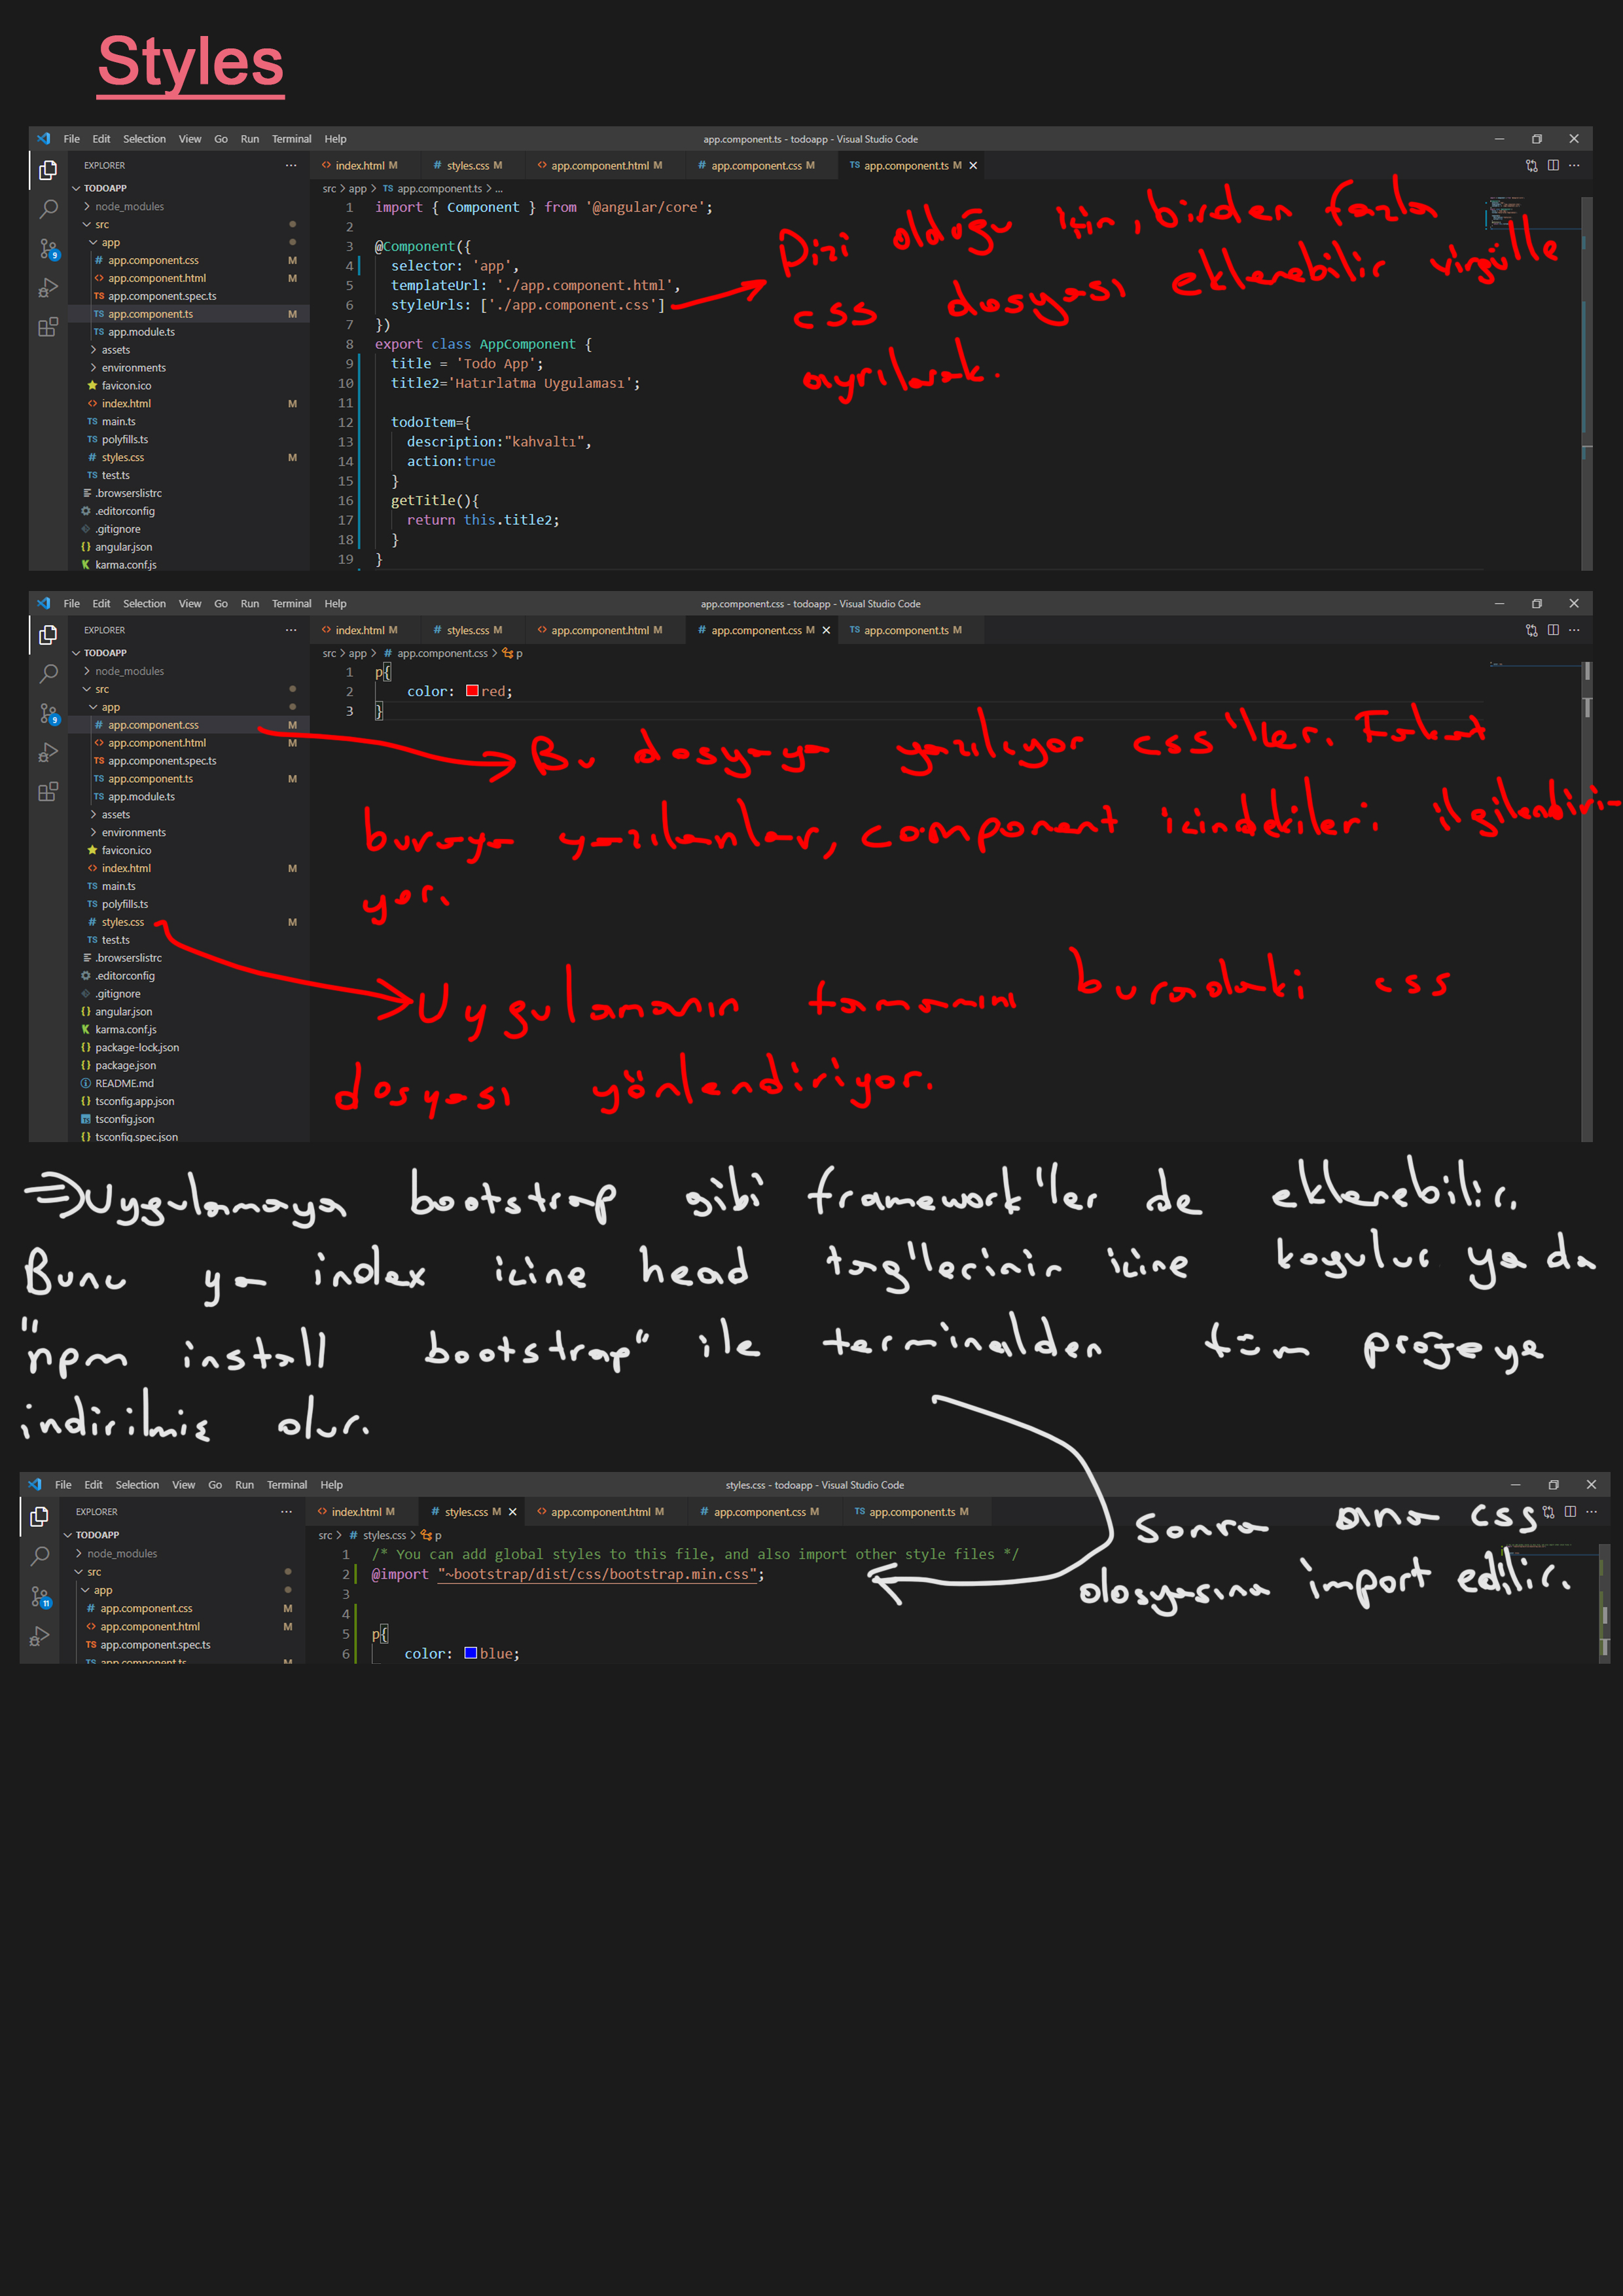 Styles
File Edit Selection View Go Run Terminal Help app.component.ts - todoapp - Visual Studio Code
EXPLORER ··· index.html M styles.css M app.component.html M app.component.css M app.component.ts M
TODOAPP
src > app > app.component.ts > ...
node_modules
src
app
app.component.css M
app.component.html M
app.component.spec.ts
app.component.ts M
app.module.ts
assets
environments
favicon.ico
index.html M
main.ts
polyfills.ts
styles.css M
test.ts
.browserslistrc
.editorconfig
.gitignore
angular.json
karma.conf.js
9
1 import { Component } from '@angular/core';
2
3 @Component({
4 selector: 'app',
5 templateUrl: './app.component.html',
6 styleUrls: ['./app.component.css']
7 })
8 export class AppComponent {
9 title = 'Todo App';
10 title2='Hatırlatma Uygulaması';
11
12 todoItem={
13 description:"kahvaltı",
14 action:true
15 }
16 getTitle(){
17 return this.title2;
18 }
19 }
Dizi olduğu için, birden fazla
css dosyası eklenebilir virgülle
ayrılarak.
File Edit Selection View Go Run Terminal Help app.component.css - todoapp - Visual Studio Code
EXPLORER ··· index.html M styles.css M app.component.html M app.component.css M app.component.ts M
TODOAPP
src > app > app.component.css > p
node_modules
src
app
app.component.css M
app.component.html M
app.component.spec.ts
app.component.ts M
app.module.ts
assets
environments
favicon.ico
index.html M
main.ts
polyfills.ts
styles.css M
test.ts
.browserslistrc
.editorconfig
.gitignore
angular.json
karma.conf.js
package-lock.json
package.json
README.md
tsconfig.app.json
tsconfig.json
tsconfig.spec.json
9
1 p{
2 color: red;
3 }
Bu dosyaya yazılıyor css'ler. Fakat
buraya yazılanlar, component icindekileri ilgilendiri-
yor.
Uygulamanın tamamını buradaki css
dosyası yönlendiriyor.
⇒ Uygulamaya bootstrap gibi framework'ler de eklenebilir.
Bunu ya index icine head tag'lerinin icine koyulur ya da
"npm install bootstrap" ile terminalden tüm projeye
indirilmiş olur.
File Edit Selection View Go Run Terminal Help styles.css - todoapp - Visual Studio Code
EXPLORER ··· index.html M styles.css M app.component.html M app.component.css M app.component.ts M
TODOAPP
src > styles.css > p
node_modules
src
app
app.component.css M
app.component.html M
app.component.spec.ts
app.component.ts M
11
1 /* You can add global styles to this file, and also import other style files */
2 @import "~bootstrap/dist/css/bootstrap.min.css";
3
4
5 p{
6 color: blue;
Sonra ana css
dosyasına import edilir.